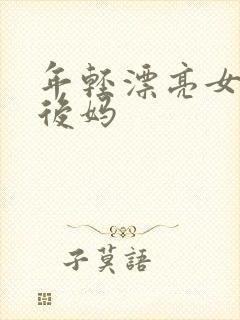 年轻漂亮女
後妈
子莫語